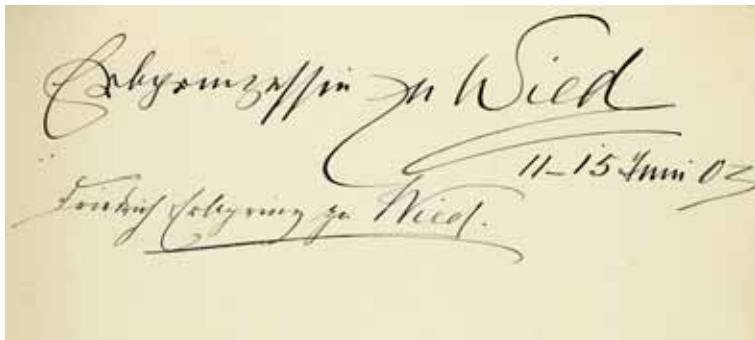 Erbprinzessin zu Wied
11–15 Juni 02
Friedrich Erbprinz zu Wied.